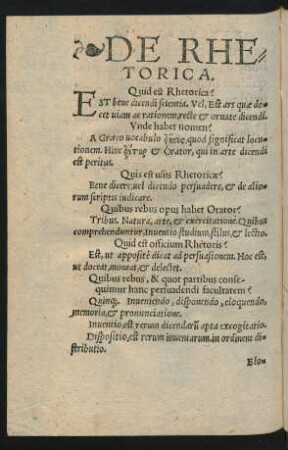 DE RHE-
TORICA.
Quid est Rhetorica?
EST bene dicendi scientia. Vel, Est ars quæ do-
cet uiam ac rationem, recte & ornate dicendi.
Vnde habet nomen?
A Græco uocabulo ῥητὸς, quod significat locu-
tionem. Hinc ῥήτωρ & Orator, qui in arte dicendi
est peritus.
Quis est usus Rhetoricæ?
Bene dicere, uel dicendo persuadere, & de alio-
rum scriptis iudicare.
Quibus rebus opus habet Orator?
Tribus. Natura, arte, & exercitatione. Quibus
comprehenduntur, Inuentio studium, stilus, & lectio.
Quid est officium Rhetoris?
Est, ut appositè dicat ad persuasionem. Hoc est:
ut doceat, moneat, & delectet.
Quibus rebus, & quot partibus conse-
quimur hanc persuadendi facultatem?
Quinq;. Inueniendo, disponendo, eloquendo,
memoria, & pronunciatione.
Inuentio, est rerum dicendarū apta excogitatio.
Dispositio, est rerum inuentarum in ordinem di-
stributio.
Elo-